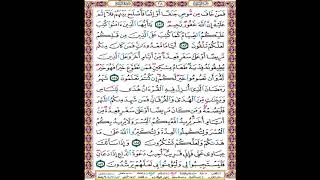 فَمَنْ خَافَ مِن مُّوصٍ جَنَفًا أَوْ إِثْمًا فَأَصْلَحَ بَيْنَهُمْ فَلَآ إِثْمَ
عَلَيْهِ إِنَّ ٱللَّهَ غَفُورٌ رَّحِيمٌ ١٨٢ يَٰٓأَيُّهَا ٱلَّذِينَ ءَامَنُوا۟ كُتِبَ
عَلَيْكُمُ ٱلصِّيَامُ كَمَا كُتِبَ عَلَى ٱلَّذِينَ مِن قَبْلِكُمْ
لَعَلَّكُمْ تَتَّقُونَ ١٨٣ أَيَّامًا مَّعْدُودَٰتٍ فَمَن كَانَ مِنكُم مَّرِيضًا
أَوْ عَلَىٰ سَفَرٍ فَعِدَّةٌ مِّنْ أَيَّامٍ أُخَرَ وَعَلَى ٱلَّذِينَ يُطِيقُونَهُۥ
فِدْيَةٌ طَعَامُ مِسْكِينٍ فَمَن تَطَوَّعَ خَيْرًا فَهُوَ خَيْرٌ لَّهُۥ
وَأَن تَصُومُوا۟ خَيْرٌ لَّكُمْ إِن كُنتُمْ تَعْلَمُونَ ١٨٤ شَهْرُ
رَمَضَانَ ٱلَّذِىٓ أُنزِلَ فِيهِ ٱلْقُرْءَانُ هُدًى لِّلنَّاسِ
وَبَيِّنَٰتٍ مِّنَ ٱلْهُدَىٰ وَٱلْفُرْقَانِ فَمَن شَهِدَ مِنكُمُ ٱلشَّهْرَ
فَلْيَصُمْهُ وَمَن كَانَ مَرِيضًا أَوْ عَلَىٰ سَفَرٍ فَعِدَّةٌ مِّنْ
أَيَّامٍ أُخَرَ يُرِيدُ ٱللَّهُ بِكُمُ ٱلْيُسْرَ وَلَا يُرِيدُ بِكُمُ
ٱلْعُسْرَ وَلِتُكْمِلُوا۟ ٱلْعِدَّةَ وَلِتُكَبِّرُوا۟ ٱللَّهَ عَلَىٰ مَا
هَدَىٰكُمْ وَلَعَلَّكُمْ تَشْكُرُونَ ١٨٥ وَإِذَا سَأَلَكَ
عِبَادِى عَنِّى فَإِنِّى قَرِيبٌ أُجِيبُ دَعْوَةَ ٱلدَّاعِ إِذَا دَعَانِ
فَلْيَسْتَجِيبُوا۟ لِى وَلْيُؤْمِنُوا۟ بِى لَعَلَّهُمْ يَرْشُدُونَ ١٨٦